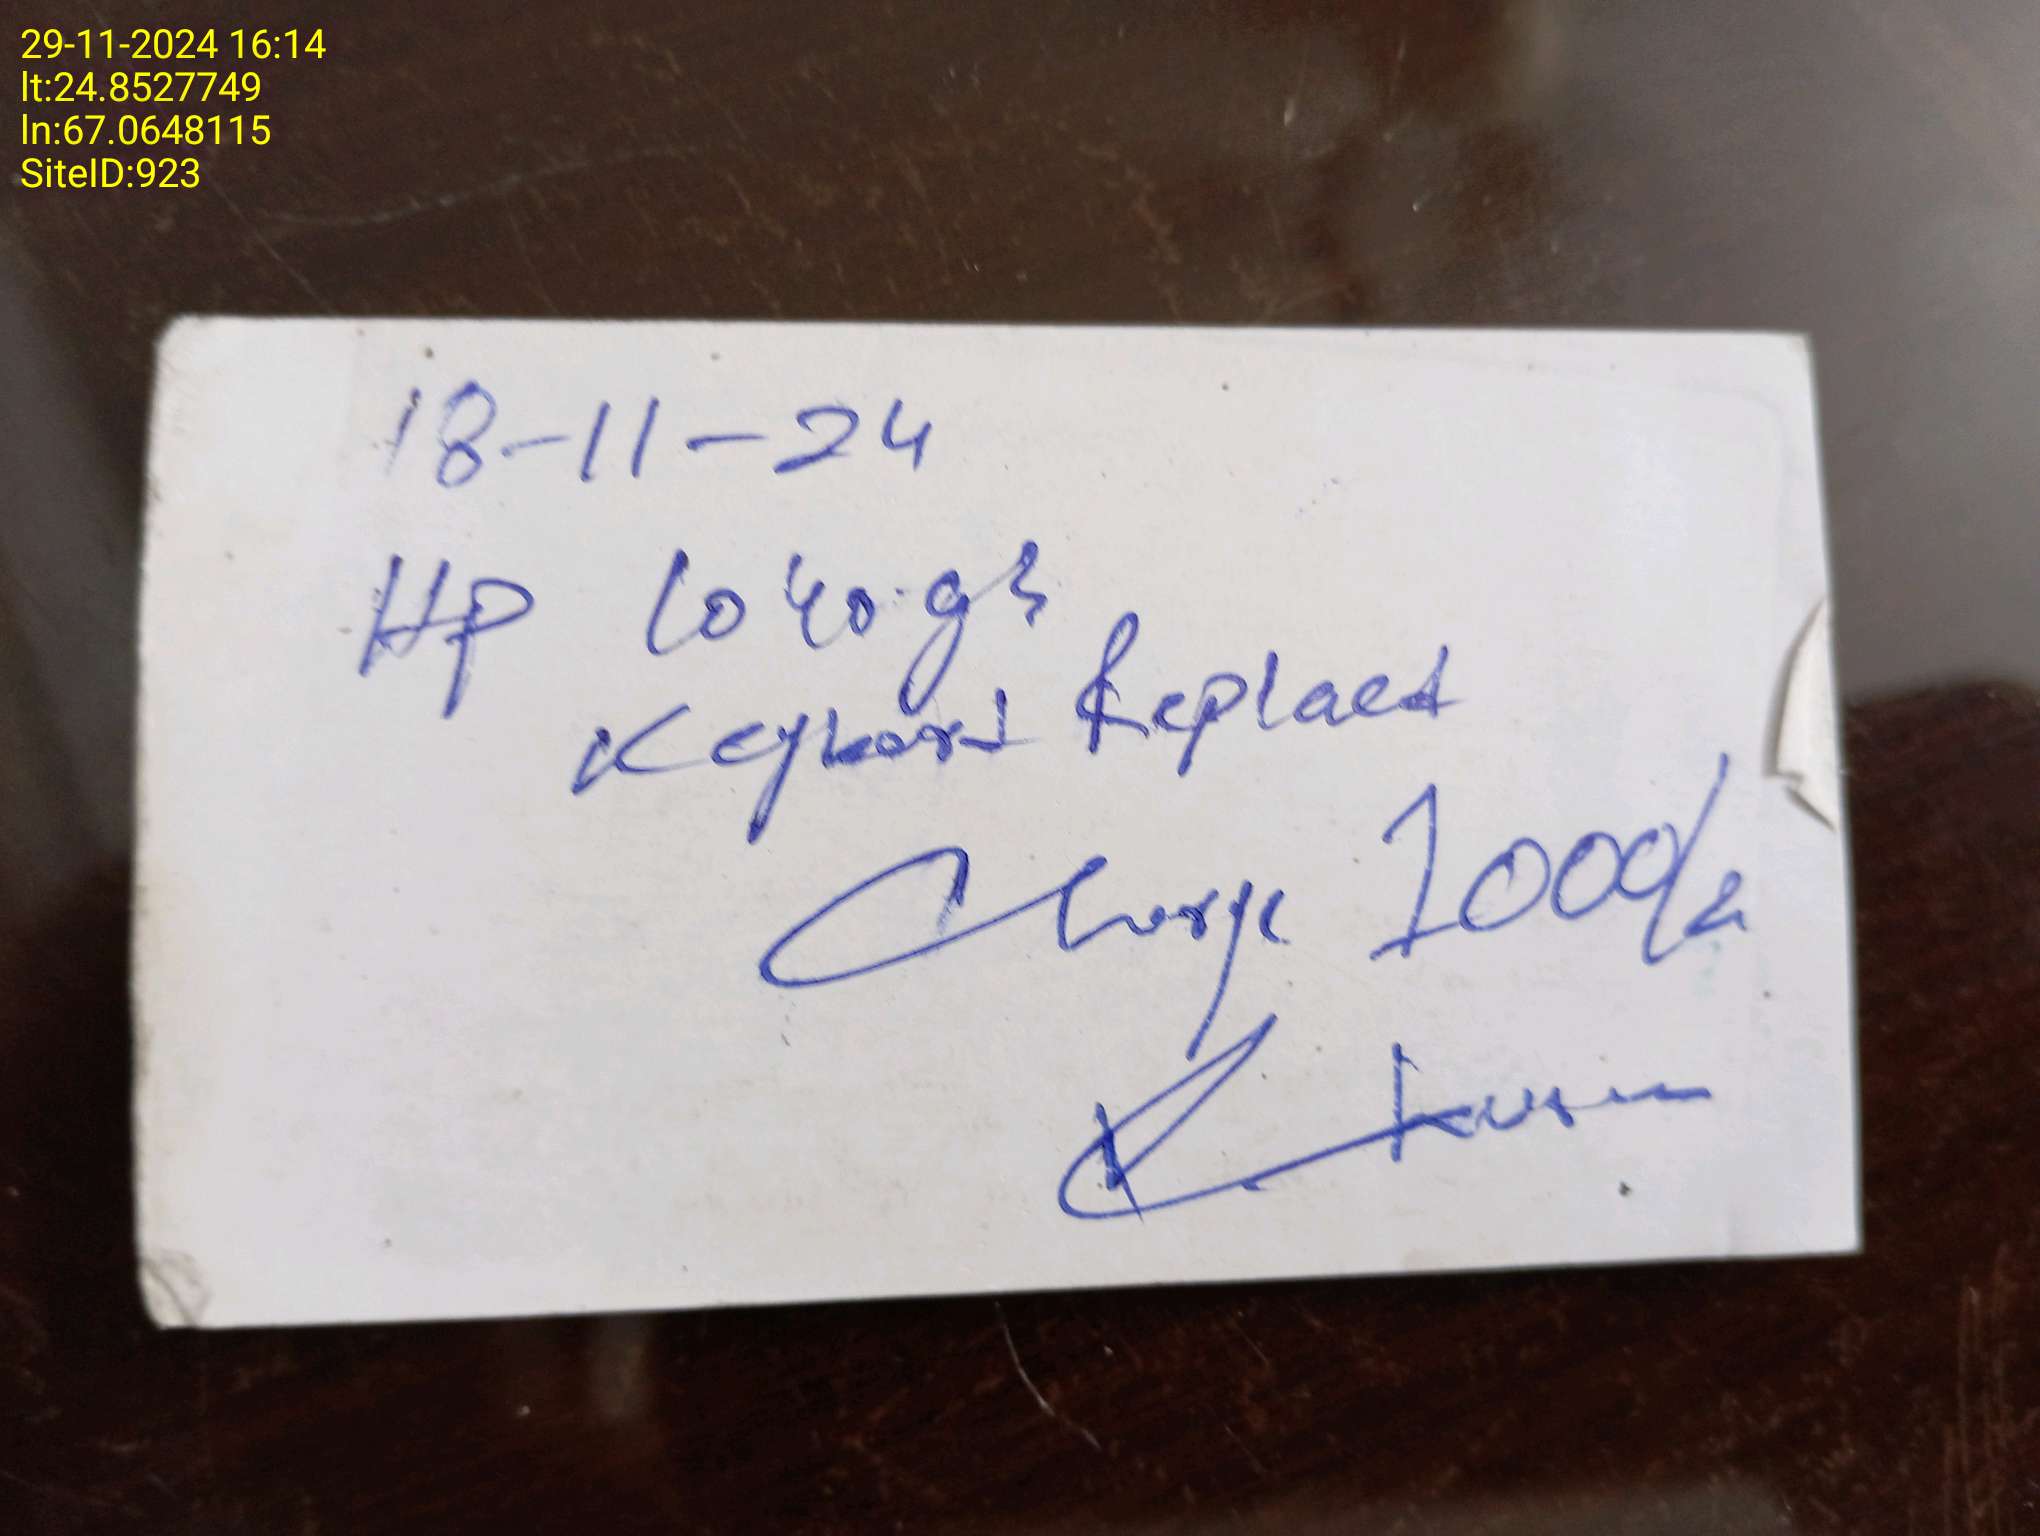 29-11-2024 16:14
lt:24.8527749
ln:67.0648115
SiteID:923
18-11-24
HP 1040 g3
Keybord Replaed
Charge 1000/-